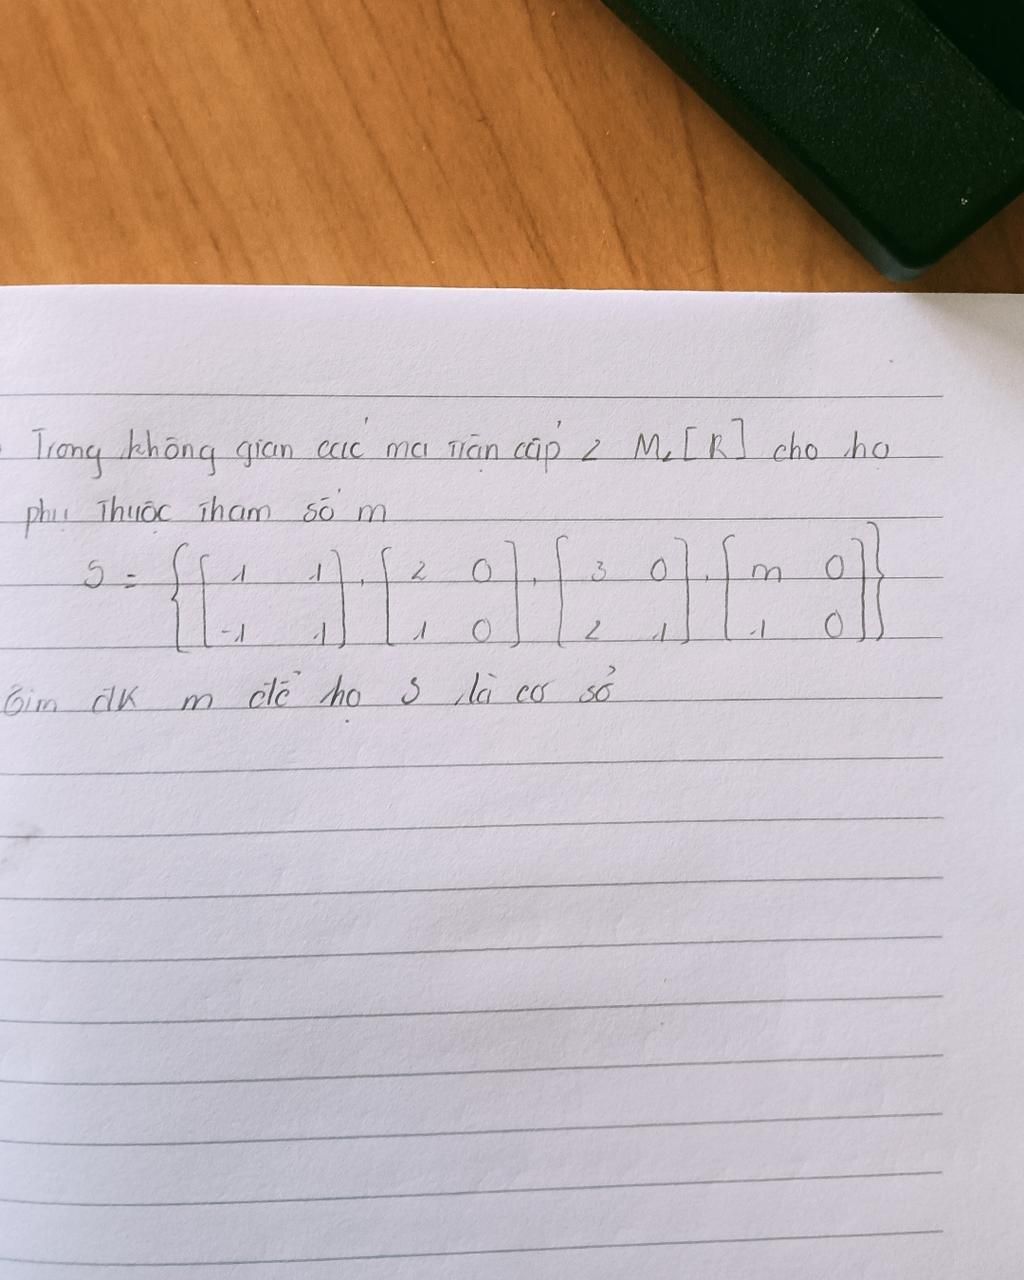 Trong không gian các ma trận cấp 2 M₂[R] cho họ
phụ thuộc tham số m
S = {[1 1; -1 1], [2 0; 1 0], [3 0; 2 1], [m 0; -1 0]}
Tìm đk m để họ S là cơ sở